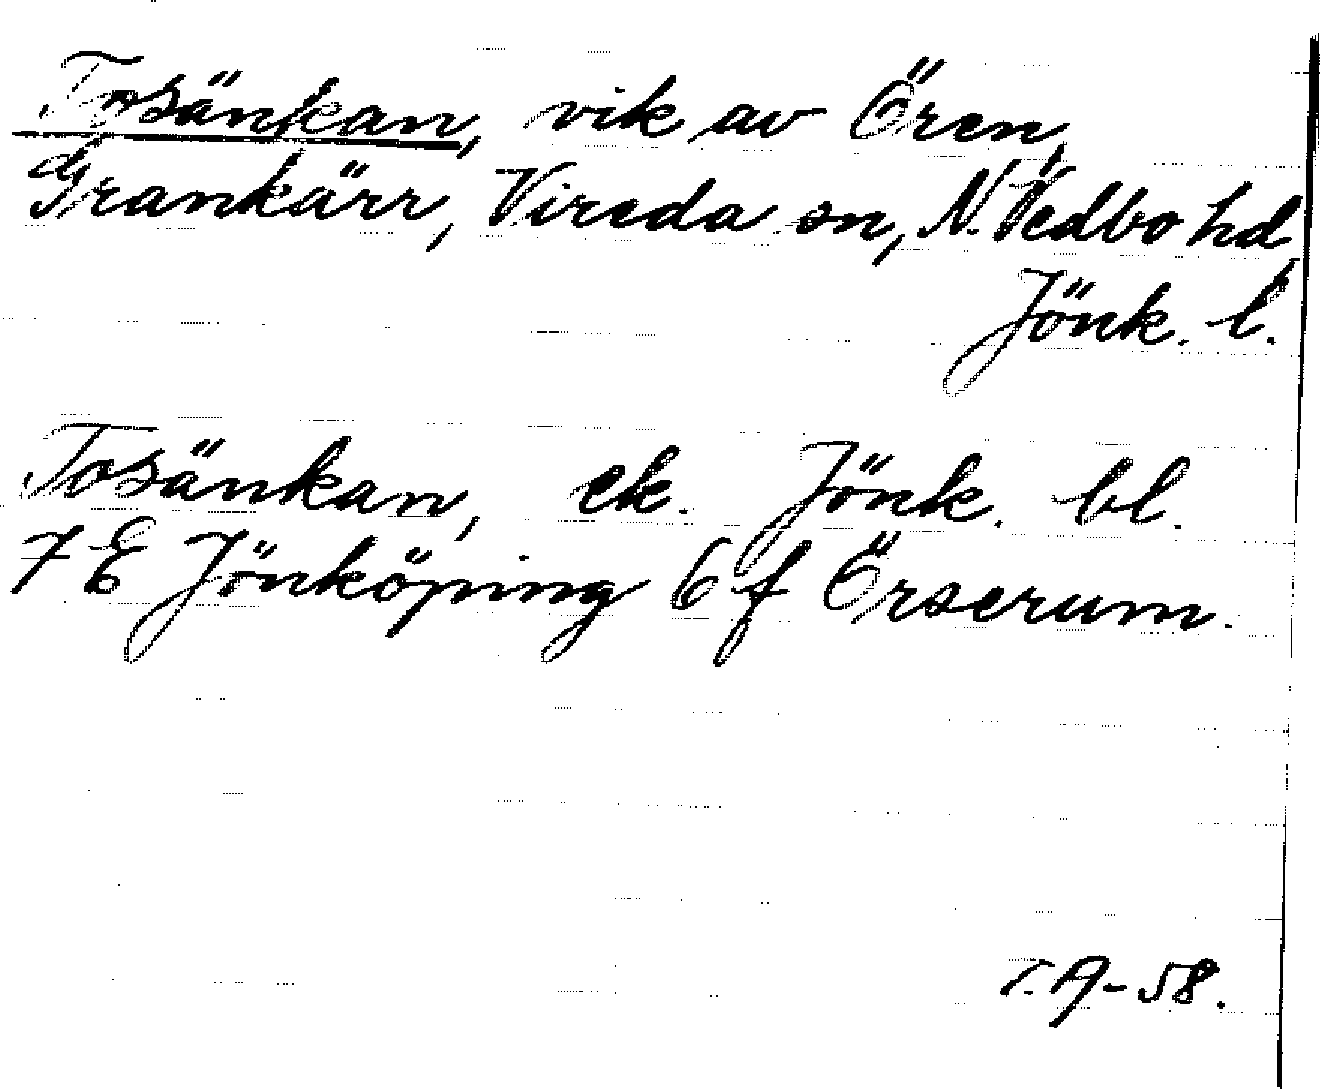 Tosänkan, vik av Ören,
Grankärr, Vireda sn, N. Vedbo hd
Jönk. l.
Tosänkan, ek. Jönk. bl.
7 E Jönköping 6 f Örserum.
T.A-58.